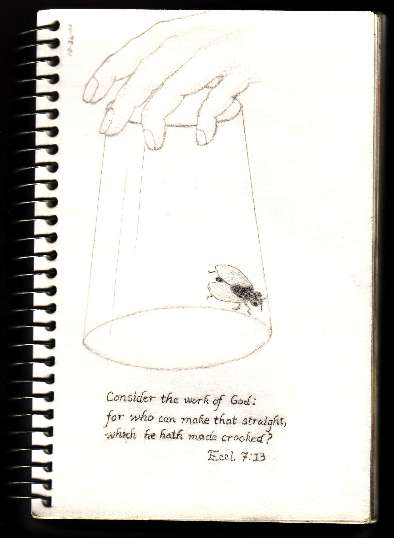 Consider the work of God:
for who can make that straight,
which he hath made crooked?
Eccl. 7:13